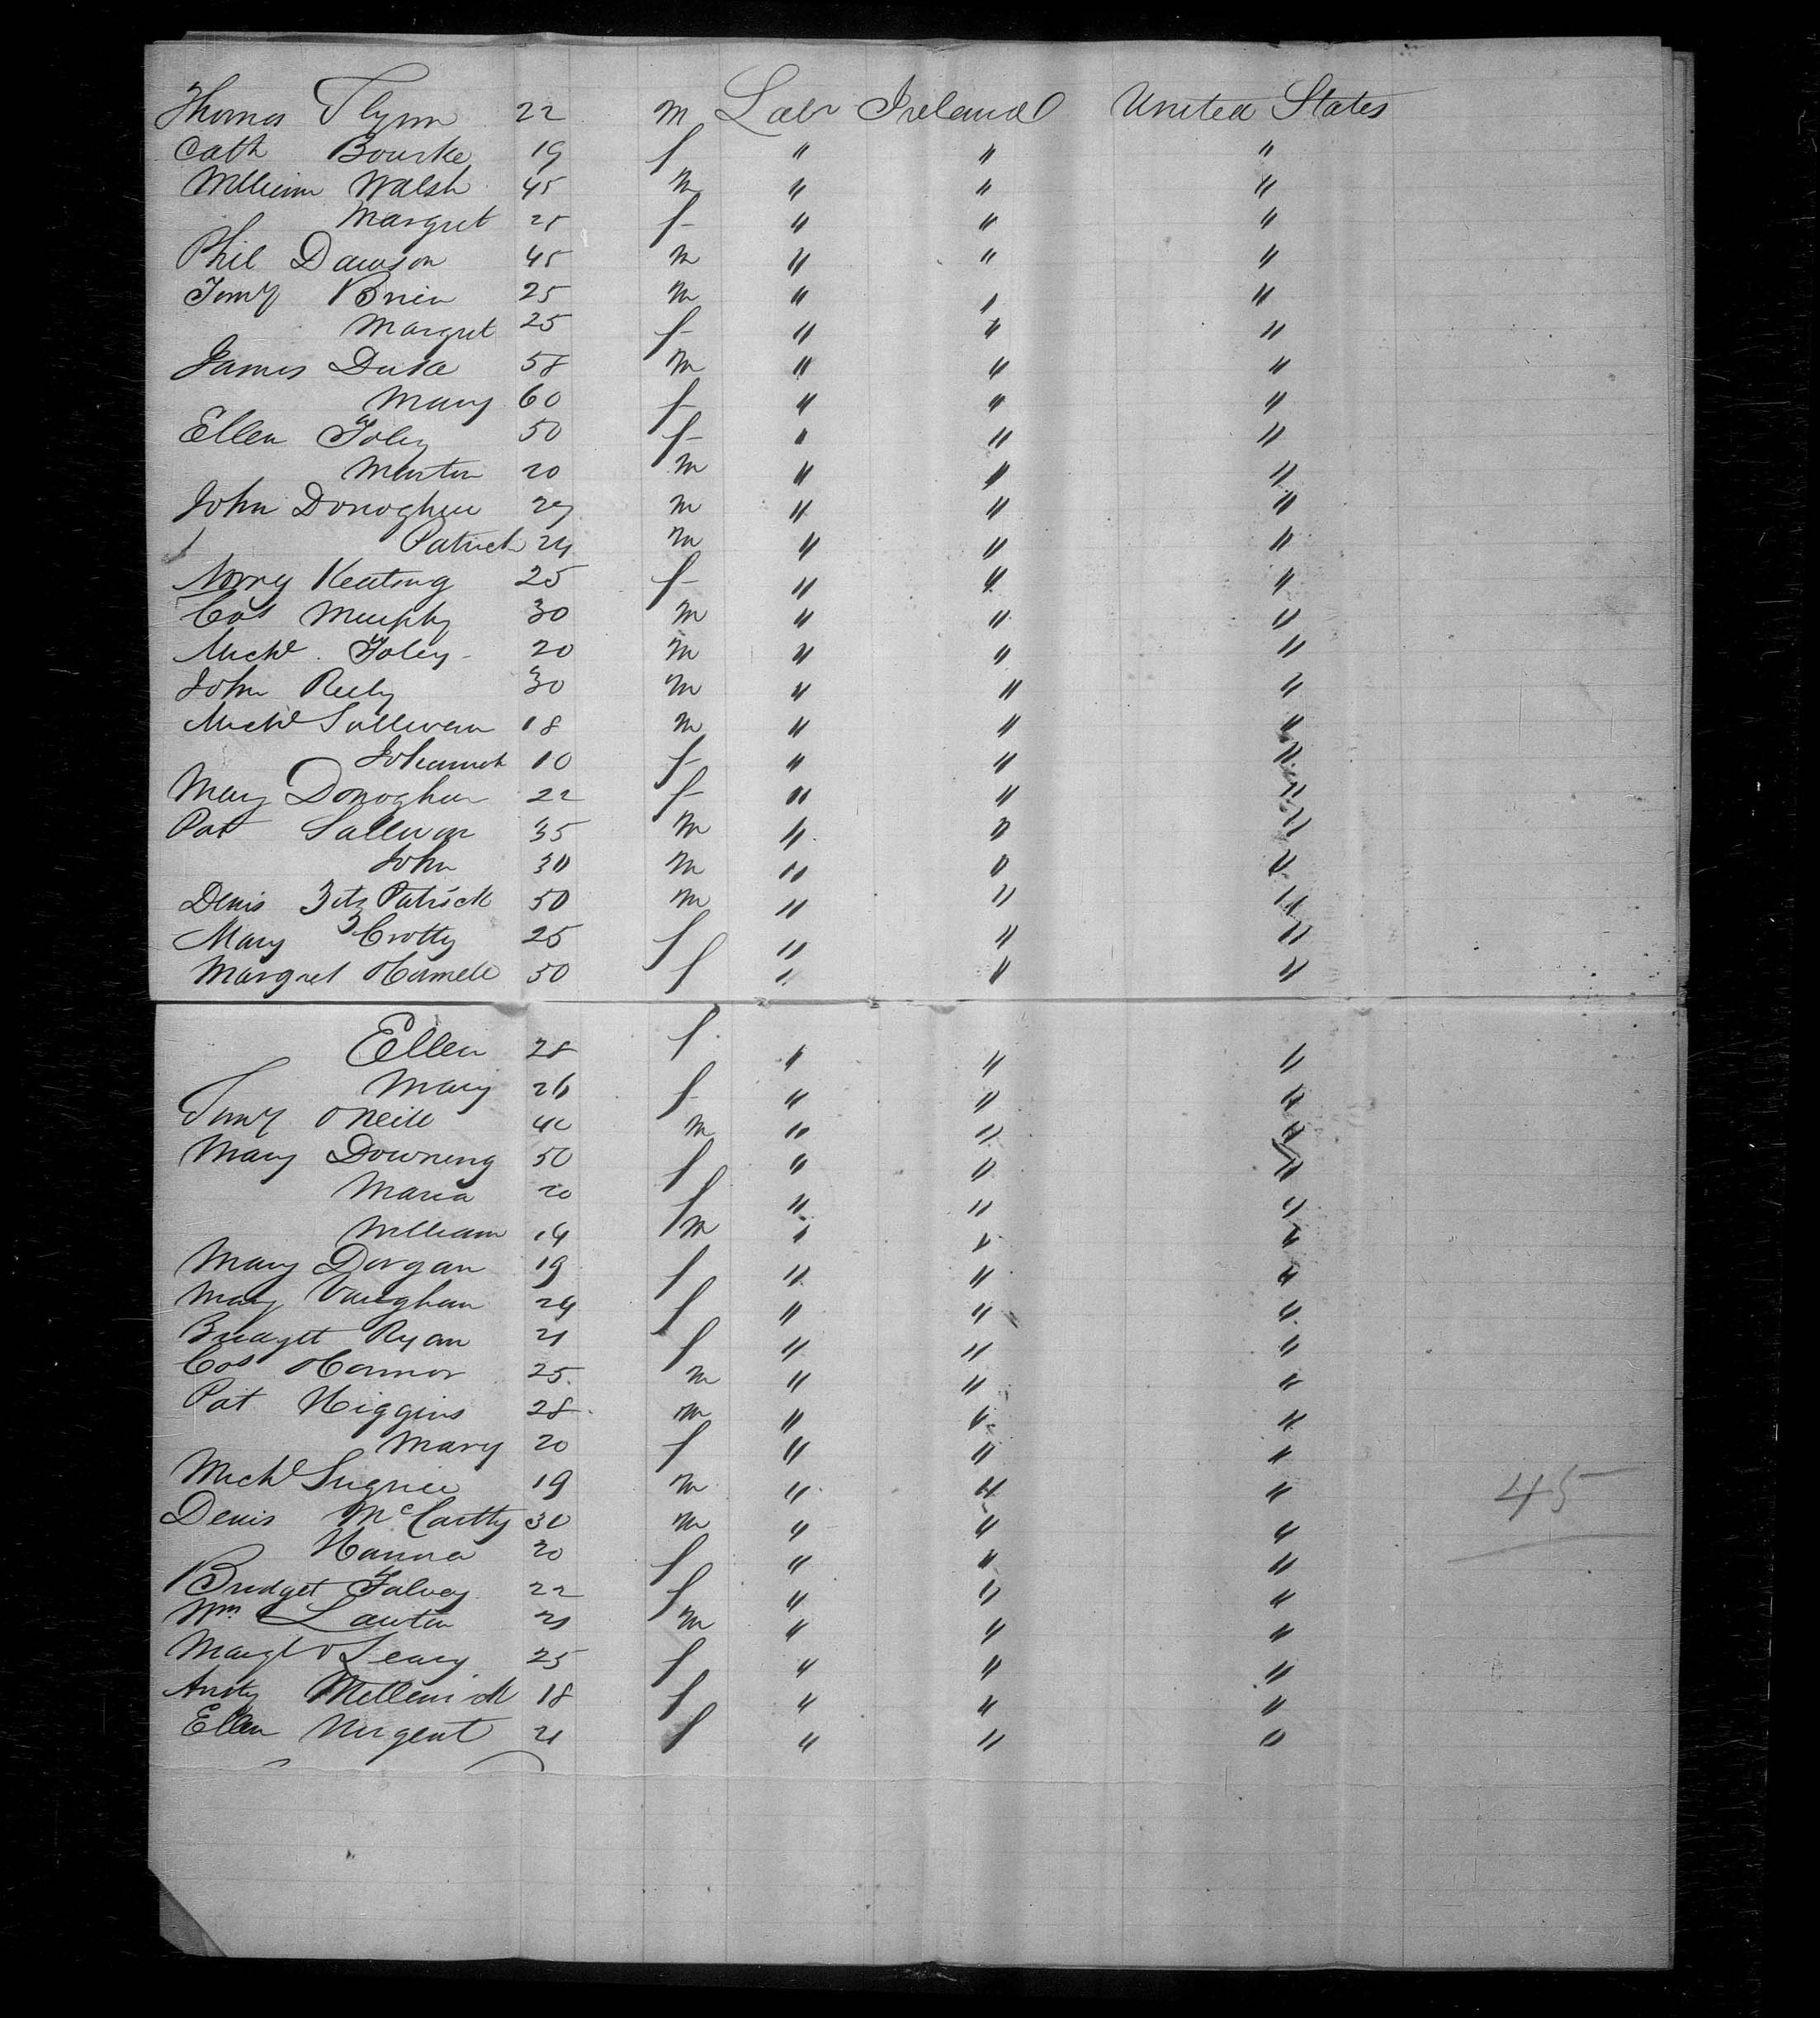 Thomas Flynn 22 m Labr Ireland United States
Cath Bourke 19 f " " "
William Walsh 45 m " " "
Margret 25 f " " "
Phil Dawson 45 m " " "
Timy Brien 25 m " " "
Margret 25 f " " "
James Duke 58 m " " "
Mary 60 f " " "
Ellen Foley 50 f " " "
Martin 20 m " " "
John Donoghue 27 m " " "
Patrick 24 m " " "
Norry Keating 25 f " " "
Cos Murphy 30 m " " "
Michl Foley 20 m " " "
John Reily 30 m " " "
Michl Sullivan 18 m " " "
Johannah 10 f " " "
Mary Donoghue 22 f " " "
Pat Sullivan 35 m " " "
John 30 m " " "
Denis Fitz Patrick 50 m " " "
Mary Crotty 25 f " " "
Margret 50 f " " "
Ellen 28 f " " "
Mary 26 f " " "
Timy ONeill 40 m " " "
Mary Downing 50 f " " "
Maria 20 f " " "
William 14 m " " "
Mary Dorgan 19 f " " "
Mary Vaughan 24 f " " "
Bridget Ryan 21 f " " "
Cos OConnor 25 m " " "
Pat Higgins 28 m " " "
Mary 20 f " " "
Michl Sugrue 19 m " " " 45
Denis McCartty 30 m " " "
Hanna 20 f " " "
Bridget Falvey 22 f " " "
Wm Lawton 21 m " " "
Margt OLeary 25 f " " "
Ansty 18 f " " "
Ellen Nugent 21 f " " "